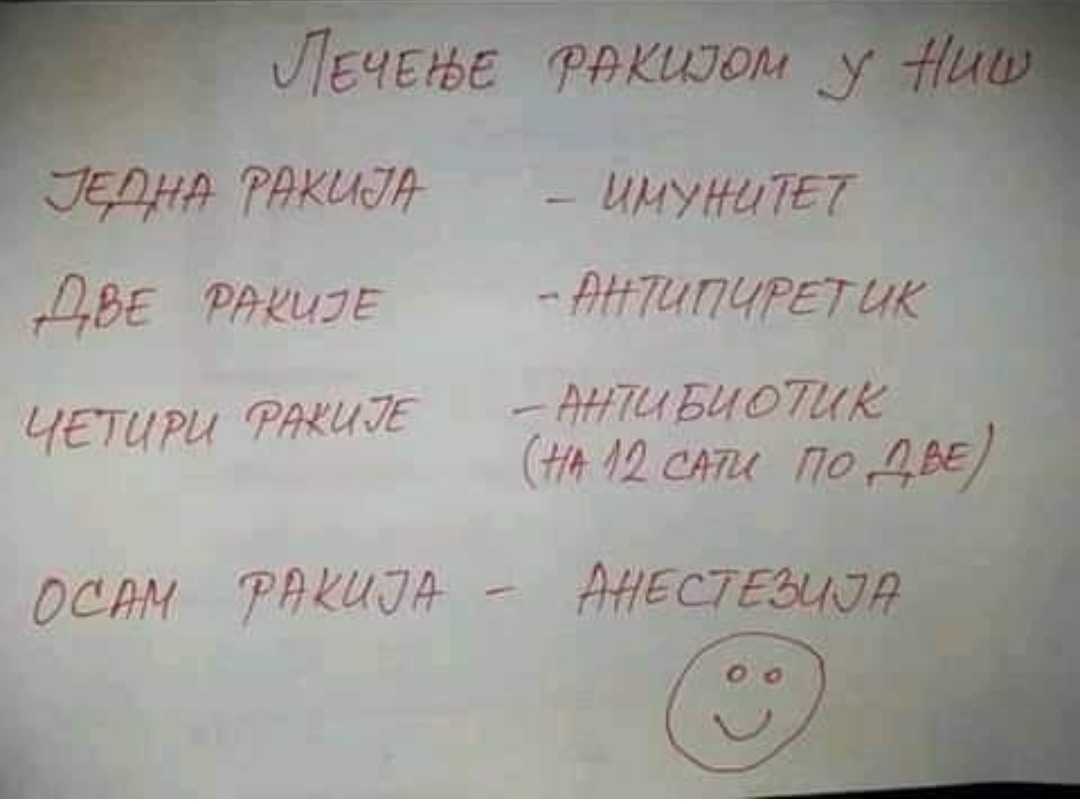 Лечење ракијом у Ниш
Једна ракија - имунитет
Две ракије - антипиретик
Четири ракије - антибиотик
(на 12 сати по две)
Осам ракија - анестезија